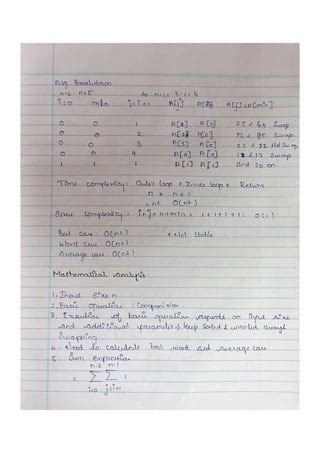 Algo Breakdown
n-2 n=5 to n-1 = 5-1 = 4
i=0 min j=i+1 A[j] A[min] A[j]<A[min]
0 0 1 A[1] A[0] 25 < 64 Swap
0 0 2 A[2] A[0] 12 < 25 Swap
0 0 3 A[3] A[0] 22 < 12 Swap
0 0 4 A[4] A[0] 11 < 12 Swap
1 1 And so on
Time complexity: Outer loop × Inner loop × Return
n × n × 1
= n² O(n²)
Space complexity = i+j+n+min = 1+1+1+1: O(1)
Best case: O(n²) * Not Stable
Worst case: O(n²)
Average case: O(n²)
Mathematical Analysis:
1. Input Size n
2. Basic operation: Comparison
3. Execution of basic operation depends on Input size
and additional parameters keep sorted & unsorted arrays
Swapping
4. Need to calculate best, worst and average case
5. Sum expression
n-2 n-1
= Σ Σ 1
i=0 j=i+1